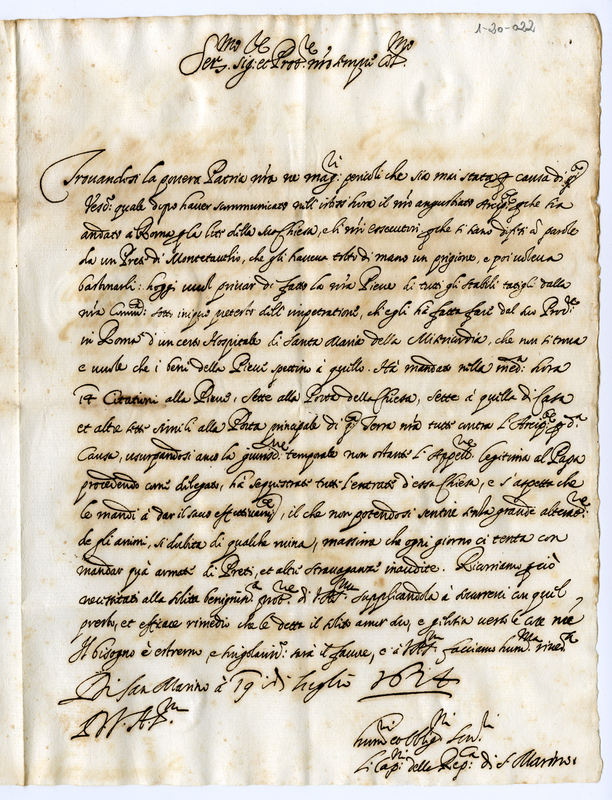 1-20-022
Ser.mo Sig.re et Prot.re n'ro sempre
Trovandosi la povera Patria n'ra ne mag.ri pericoli che sia mai stata p causa di q.
Vesc.o quale dopo haver summunicato nell' hora il n'ro Arcip.te p che sia
andato à Roma p la lite della sua Chiesa, e li n'ri essecutori p che si sono difesi à parole
da un Prete di Monte, che gli haveva tolto di mano un prigione, e poi voleva
bastonarli: hoggi vuol privar di fatto la n'ra Pieve di tutti gli stabili datigli dalla
n'ra Comm.tà sotto iniquo pretesto dell' impetratione, ch'egli hà fatto fare dal suo
in Roma d'un certo Hospitale di Santa Maria della Misericordia, che non si trova
e vuole che i beni della Pieve spettino à quello. Hà mandato nella med.a hora
14 Citationi alla Pieve, sette alla Porta della Chiesa, sette à quella di Casa
et altre sette simili alla Porta principale di q.a Terra n'ra tutte contra l'Arcip.te p d.a
Causa, usurpandosi anco la giurisd.ne temporale non ostante l'Appell.ne legitima al Papa
procedendo come delegato, hà sequestrato tutte l'entrate d'essa Chiesa, e s'aspetta che
le mandi à dar il sacco effettivam.te, il che non potendosi sentire senza grande alterat.ne
de gli animi, si dubita di qualche ruina, massime che ogni giorno ci tenta con
mandar quà armate di Preti, et altre stravaganze inaudite. Ricorriamo p ciò
necessitati alla solita benignità di V.A. Ser.ma supplicandola à soccorrerci con quel
presto, et efficace rimedio che le detta il solito amor suo, e giustitia verso le cose n're
Il bisogno è estremo, e singolariss.o sarà il favore, e à V.A. Ser.ma facciamo hum.ma river.a
Di San Marino à 19 di luglio 1614
D. V. A. Ser.ma
hum.mi et obblig.mi Ser.ri
Li Cap.ni della Rep.ca di S. Marino